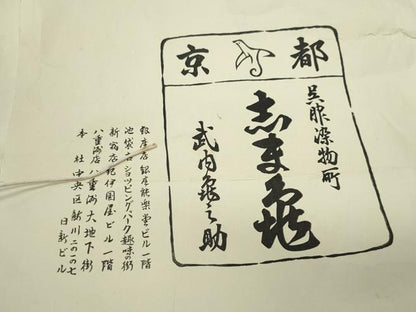 京都
呉服染物町
志ま亀
武内亀之助
銀座店 銀座能楽堂ビル一階
池袋店 ショッピングパーク趣味の街
新宿店 紀伊國屋ビル一階
八重洲店 八重洲大地下街
本社 中央区新川二の一の七
日新ビル